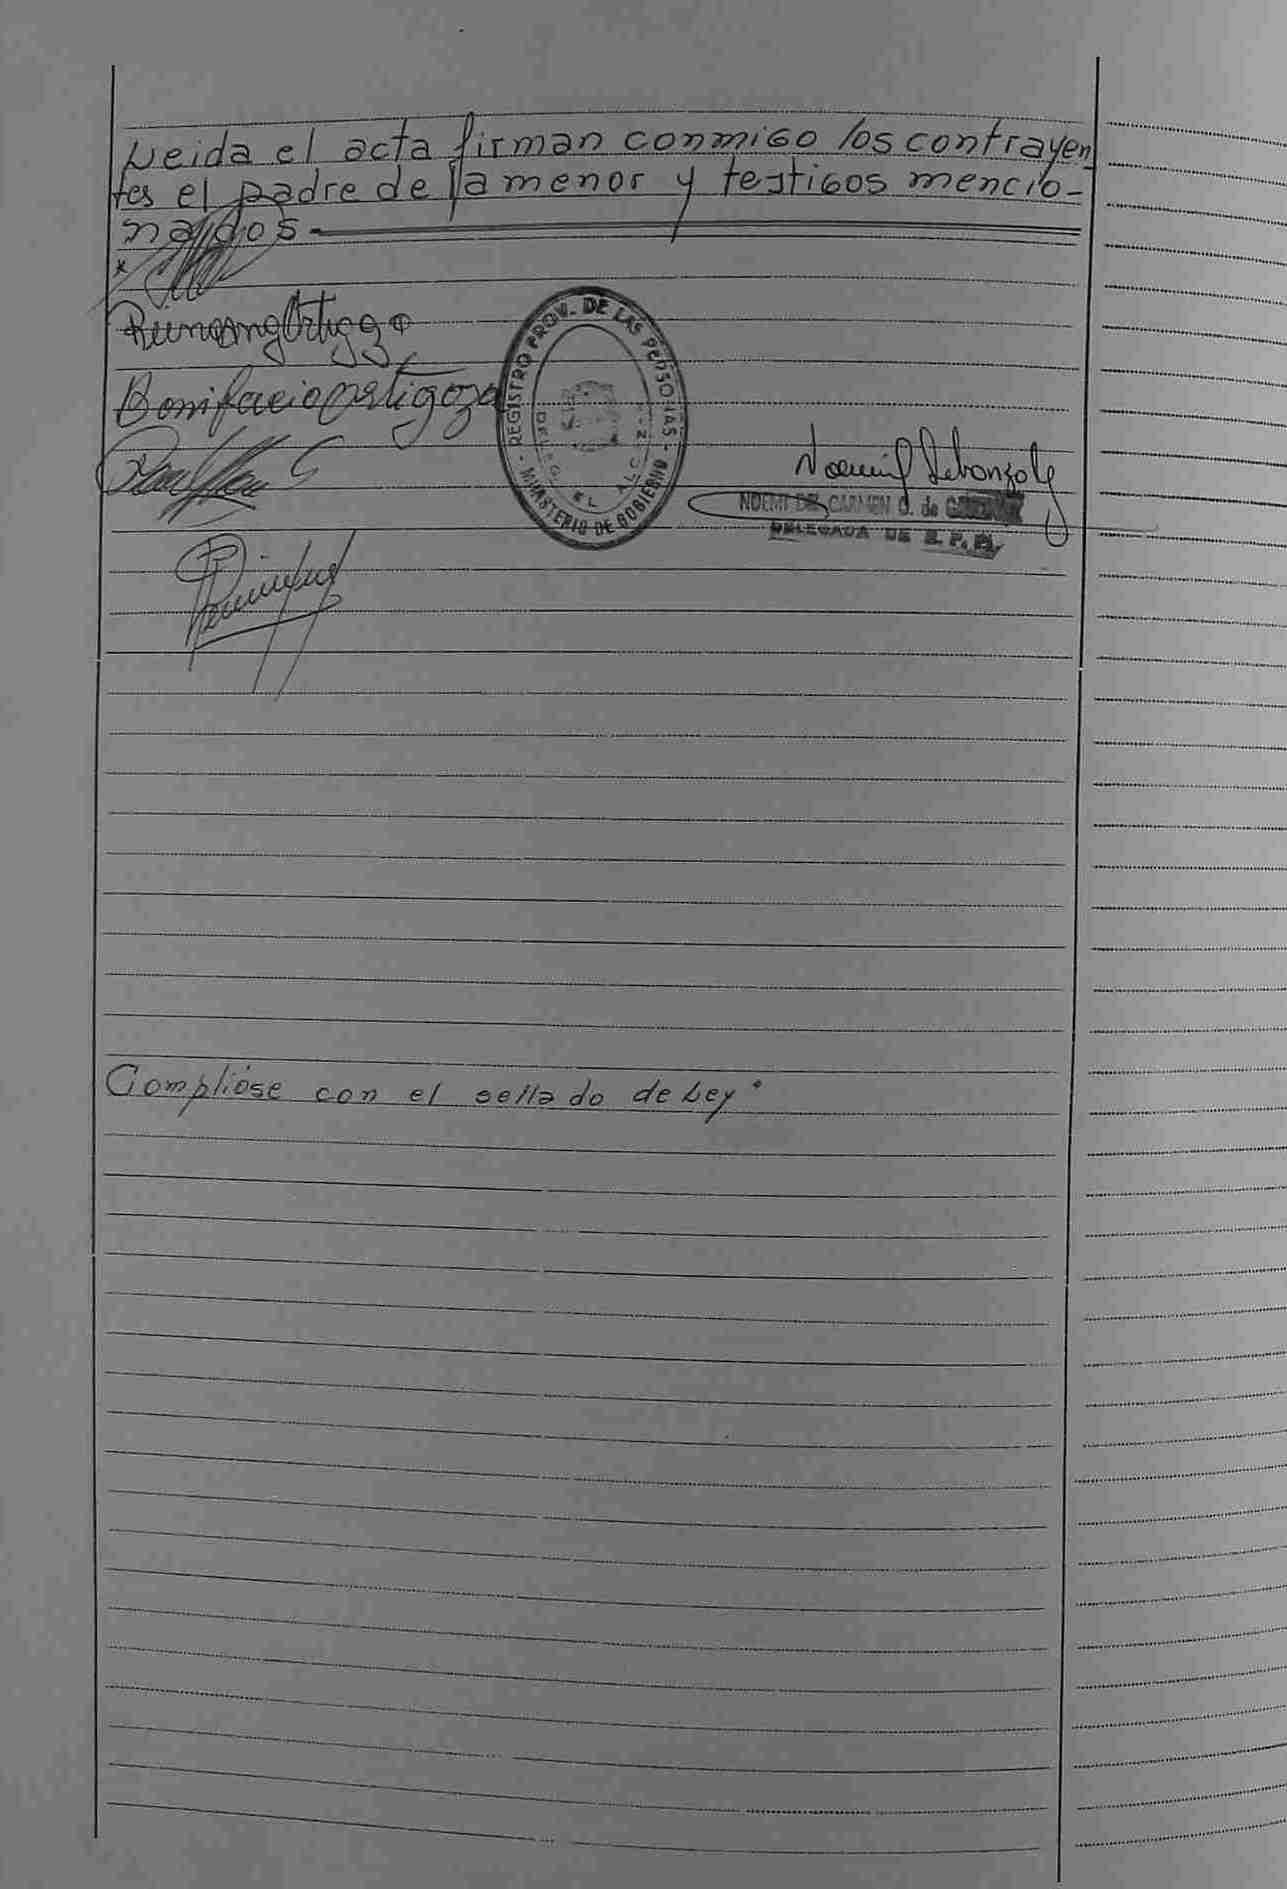 Leida el acta firman conmigo los contrayen-
tes el padre de la menor y testigos mencio-
nados.
x
Bonifacio Ortigoza
- REGISTRO PROV. DE LAS PERSONAS -
MINISTERIO DE GOBIERNO
NOEMI DEL CARMEN G. de
DELEGADA DE R. P. P.
Complióse con el sellado de Ley.